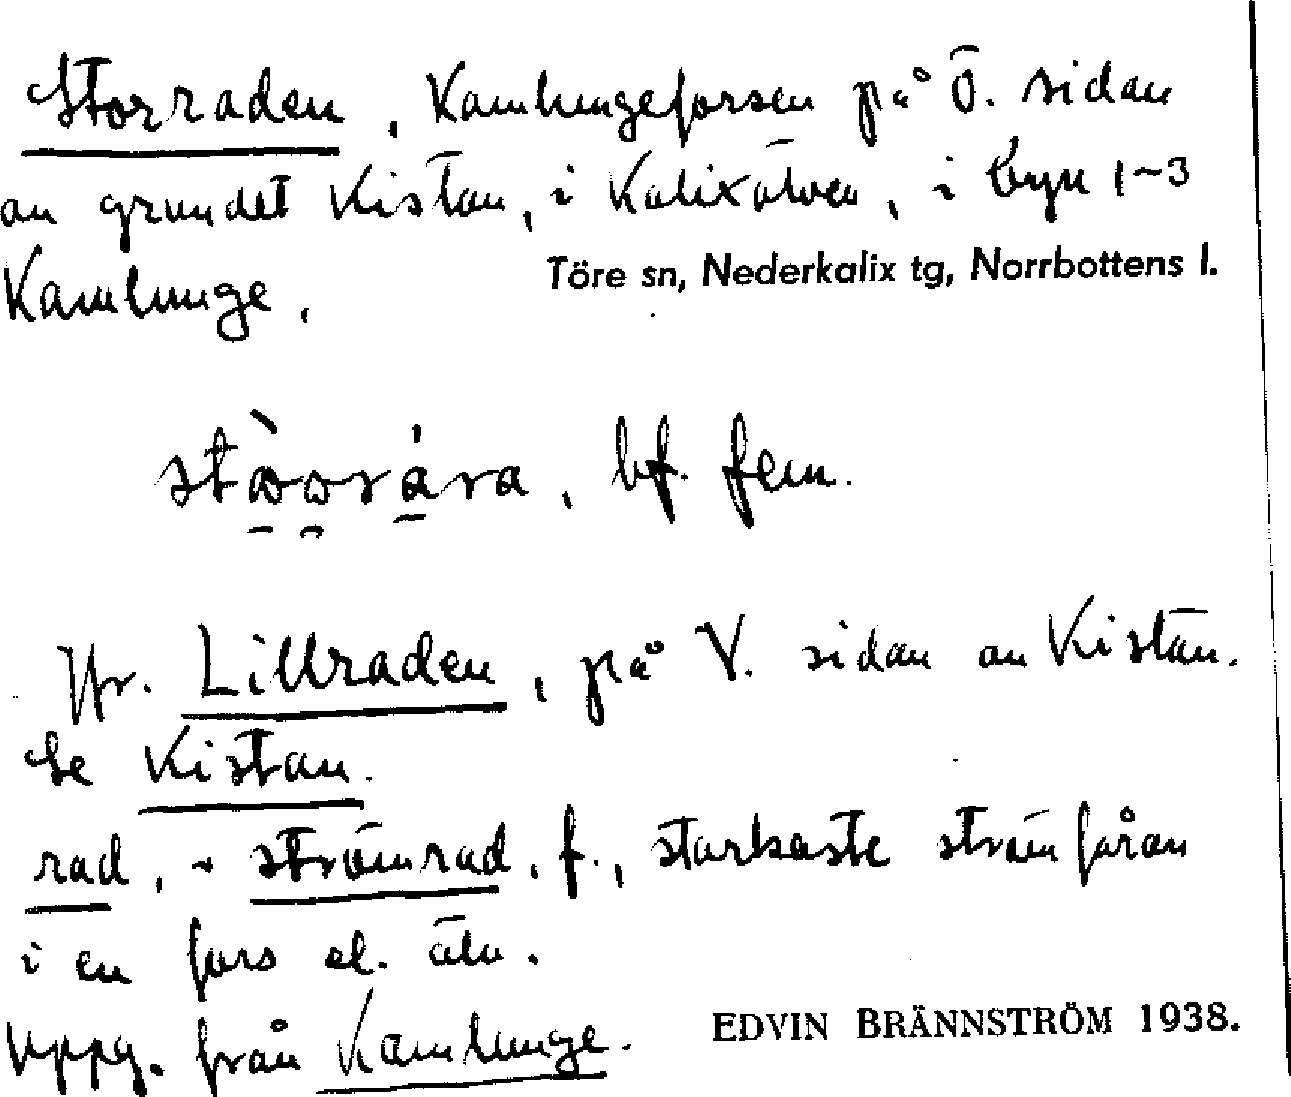 Storraden, Kamlungeforsen på Ö. sidan
av grundet Kistan, i Kalixälven, i byn 1-3
Kamlunge. Töre sn, Nederkalix tg, Norrbottens l.
bf. fem.
Jfr. Lillraden, på V. sidan av Kistan.
Se Kistan.
rad, strömrad, f., starkaste strömfåran
i en fors el. älv.
Uppg. från Kamlunge. EDVIN BRÄNNSTRÖM 1938.